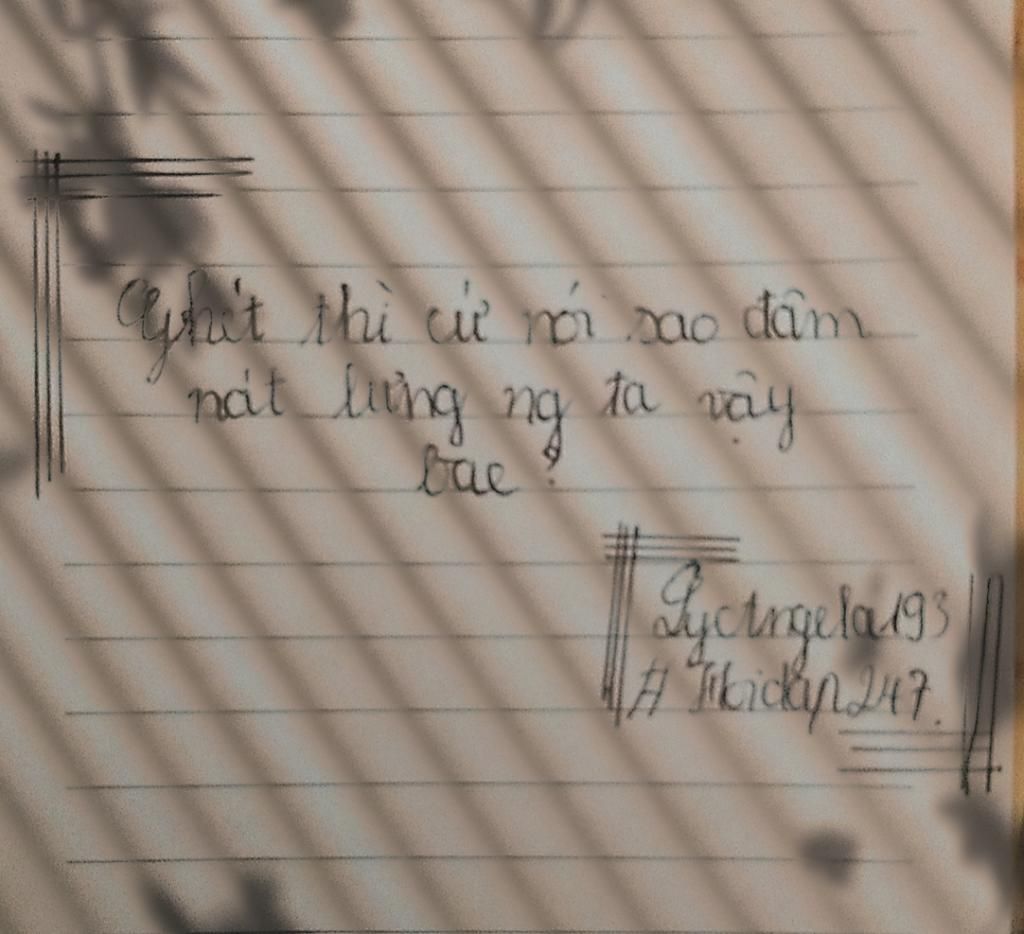 Ghít thì cứ nói sao đâm
nát lưng ng ta vậy
bae?
LycAngela193
# Hoidap247.